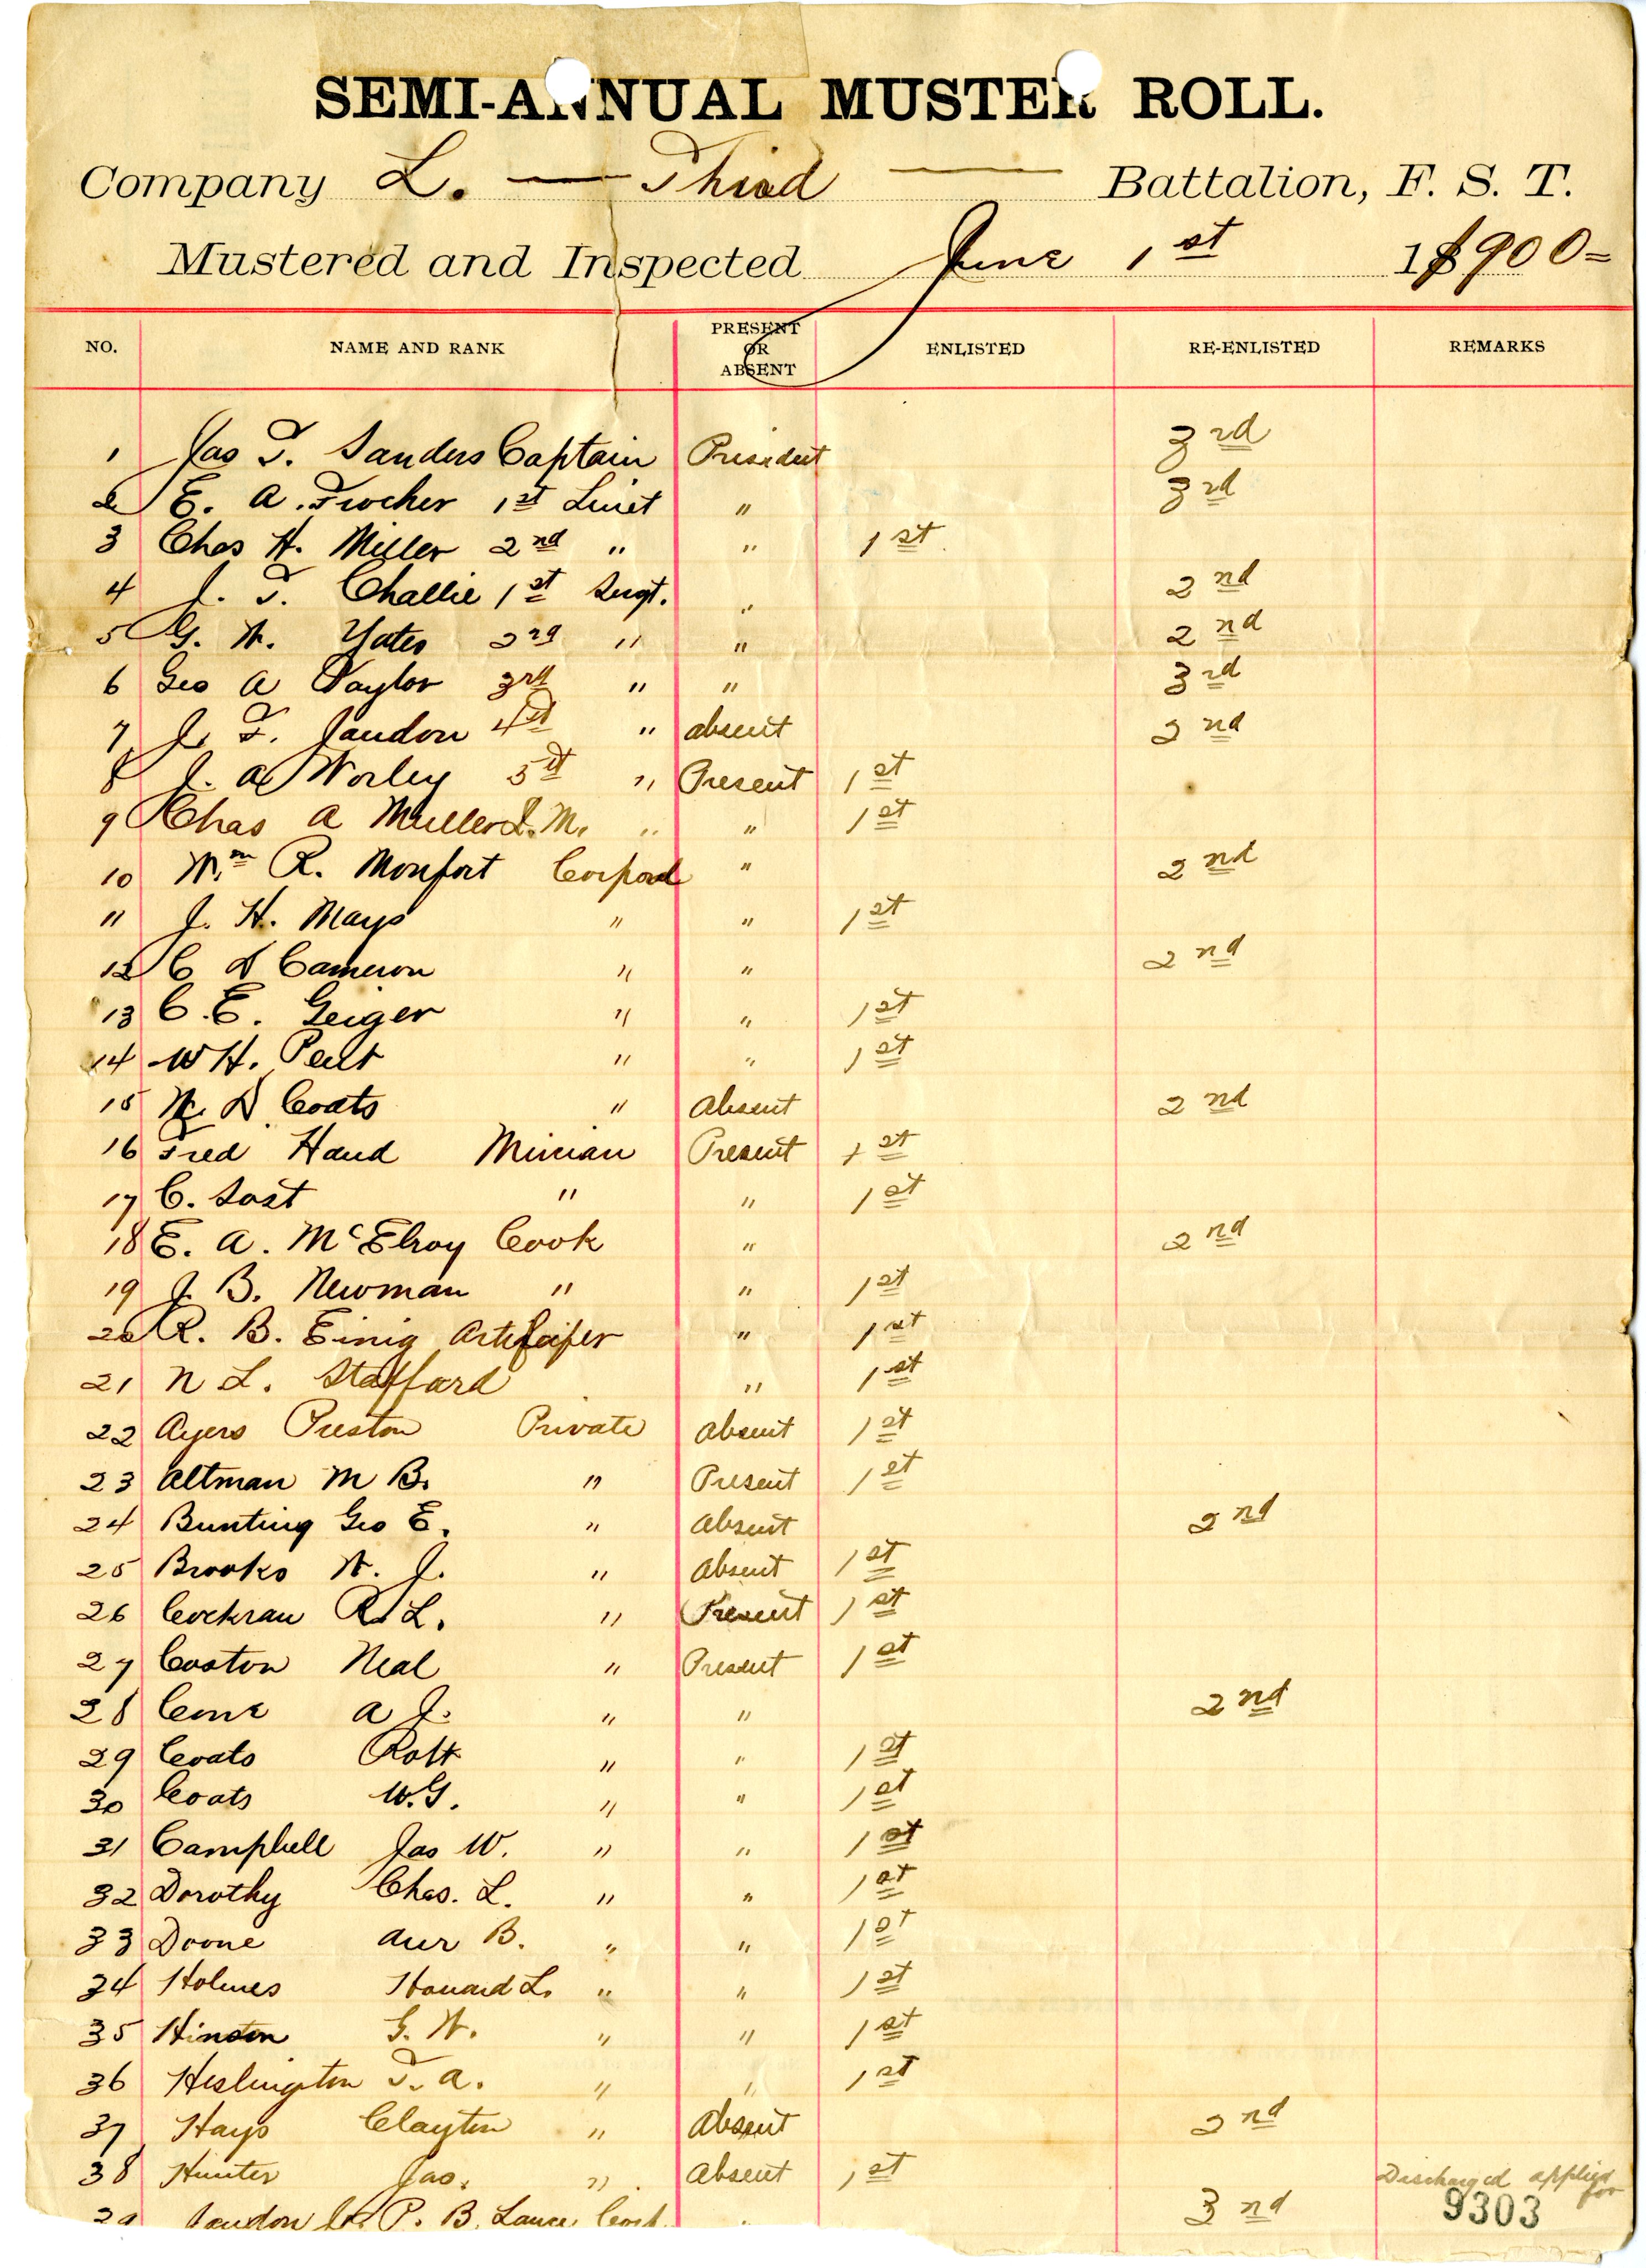 SEMI-ANNUAL MUSTER ROLL.
Company L. — Third — Battalion, F. S. T.
Mustered and Inspected June 1st 18900=
NO. NAME AND RANK PRESENT OR ABSENT ENLISTED RE-ENLISTED REMARKS
1 Jas T. Sanders Captain Present 3rd
2 E. A. Trocher 1st Lieut " 3rd
3 Chas H. Miller 2nd " " 1st
4 J. T. Challie 1st Sergt. " 2nd
5 G. W. Yates 2nd " " 2nd
6 Geo A Taylor 3rd " " 3rd
7 J. F. Jaudon 4th " absent 2nd
8 J. A. Worley 5th " Present 1st
9 Chas A Muller Q.M. " " 1st
10 Wm R. Monfort Corporal " 2nd
11 J. H. Mays " " 1st
12 C D Cameron " " 2nd
13 C. E. Geiger " " 1st
14 W H. Pent " " 1st
15 W. D Coats " Absent 2nd
16 Fred Hand Present 1st
17 C. Sost " " 1st
18 E. A. McElroy Cook " 2nd
19 J. B. Newman " " 1st
20 R. B. Einig " 1st
21 N L. Stafford " 1st
22 Ayers Preston Private Absent 1st
23 Altman M B. " Present 1st
24 Bunting Geo E. " Absent 2nd
25 Brooks W. J. " Absent 1st
26 Cockran R. L. " Present 1st
27 Coston Neal " Present 1st
28 Cone A J. " " 2nd
29 Coats Robt " " 1st
30 Coats W.G. " " 1st
31 Campbell Jas W. " " 1st
32 Dorothy Chas. L. " " 1st
33 Doone Aur B. " " 1st
34 Holmes Howard L. " " 1st
35 Hinson G. W. " " 1st
36 Heslington T. A. " " 1st
37 Hays Clayton " Absent 2nd
38 Hunter Jas. " Absent 1st Discharged applied for
39 Jaudon P. B. Lance Corp. " 3nd 9303